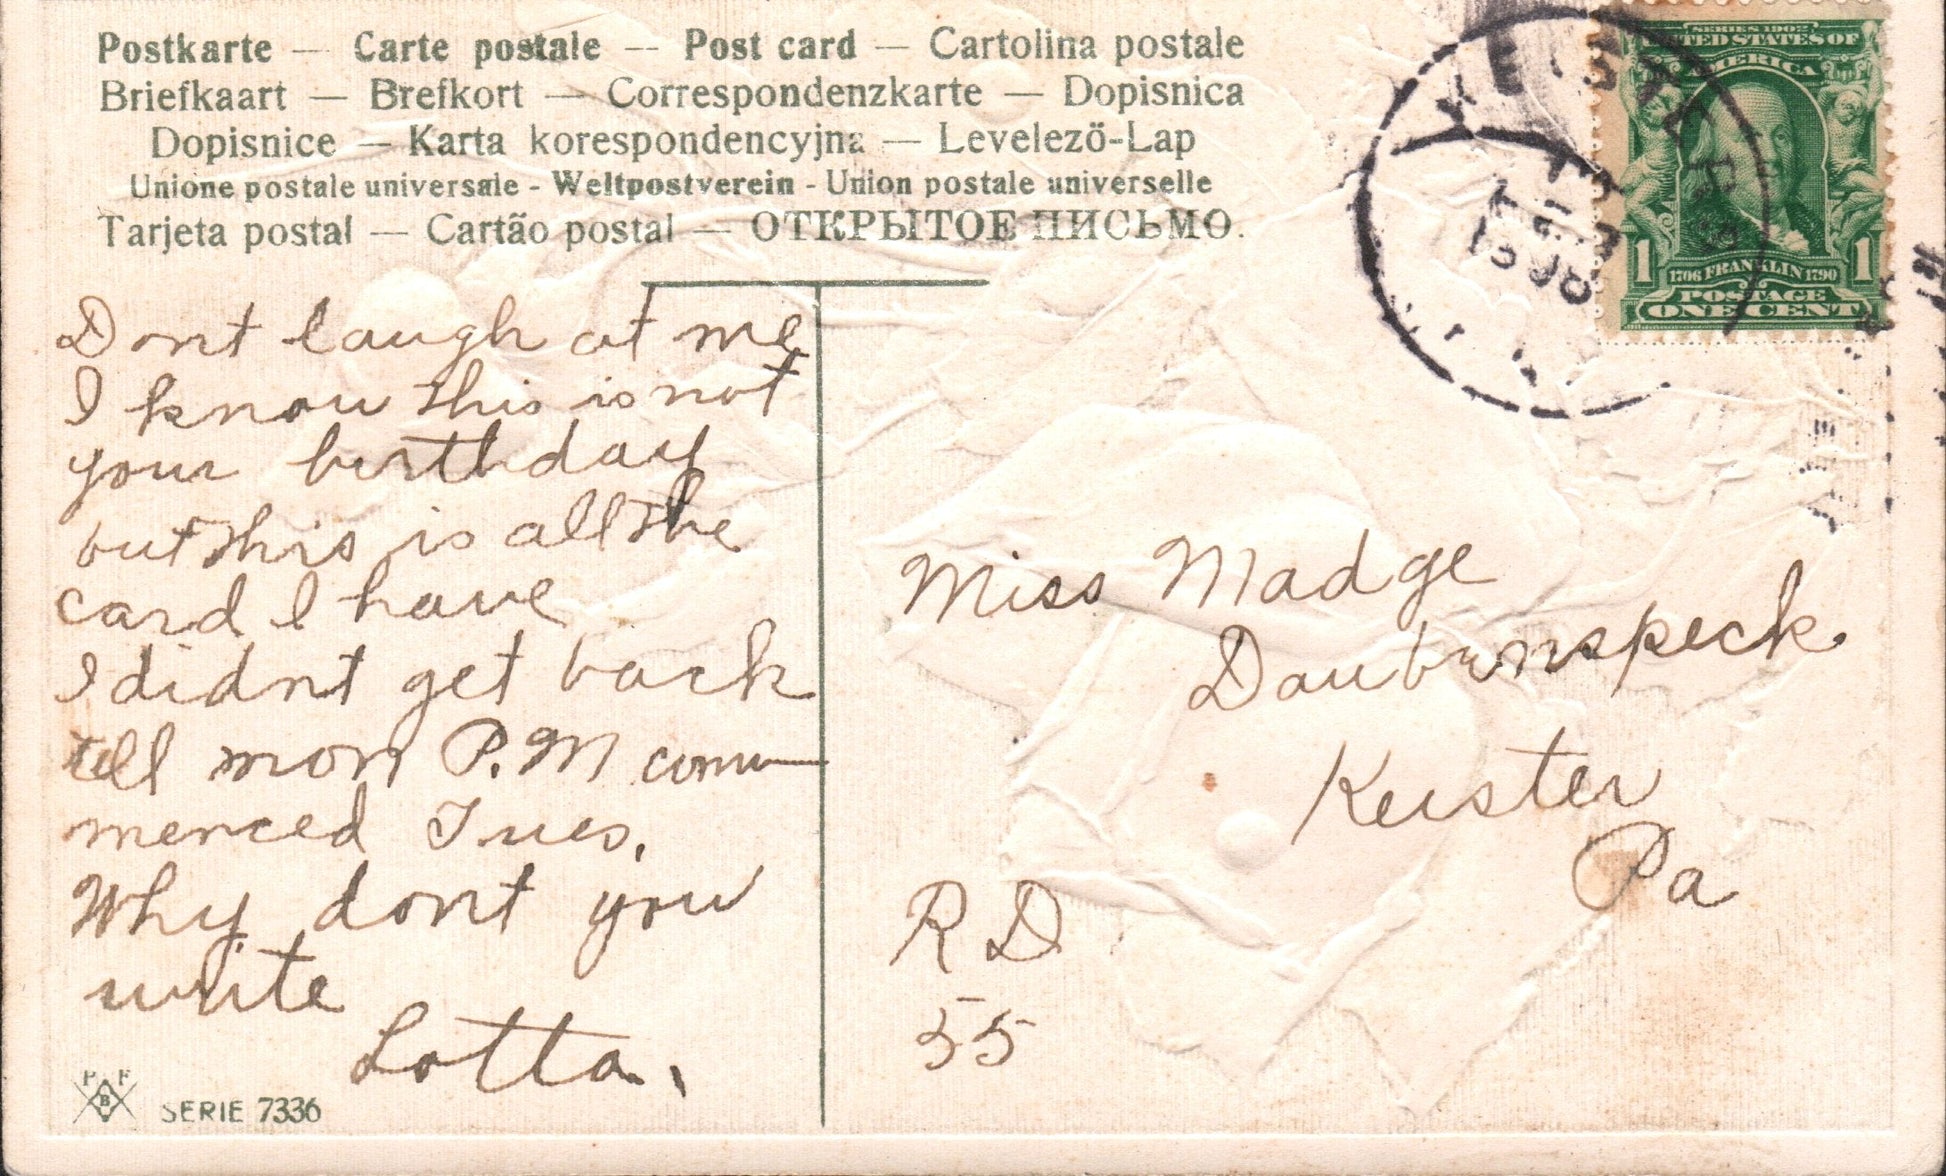 Postkarte — Carte postale — Post card — Cartolina postale
Briefkaart — Brefkort — Correspondenzkarte — Dopisnica
Dopisnice — Karta korespondencyjna — Levelező-Lap
Unione postale universale - Weltpostverein - Union postale universelle
Tarjeta postal — Cartão postal — ОТКРЫТОЕ ПИСЬМО.
KEISTER
1908
SERIES 1902
UNITED STATES OF
AMERICA
1 1706 FRANKLIN 1790 1
POSTAGE
ONE CENT
Dont laugh at me
I know this is not
your birthday
but this is all the
card I have
I didnt get back
till mon P.M com-
menced Tues.
Why dont you
write
Lotta.
Miss Madge
Daubenspeck.
Keister
Pa
R D
55
P F
B
SERIE 7336